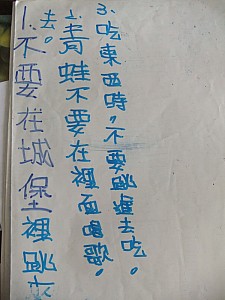 1.不要在城堡裡跳來
去。
2.青蛙不要在裡面唱歌。
3.吃東西時，不要跳過去吃。